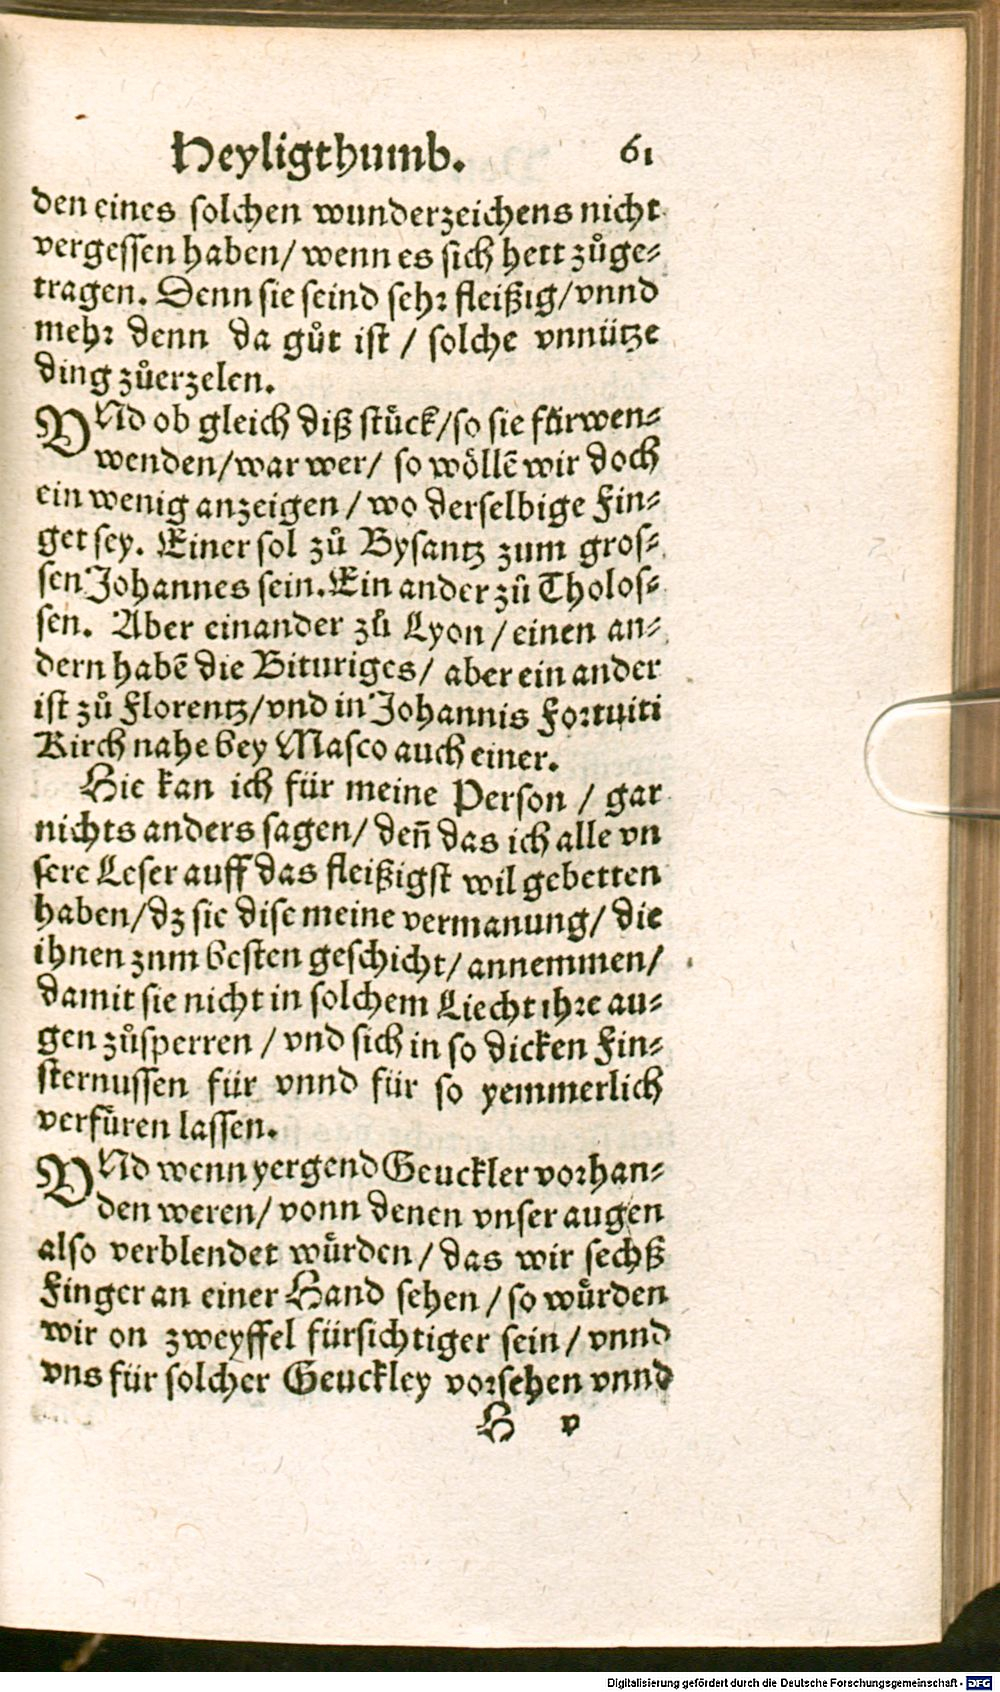 Heyligthumb. 61
den eines solchen wunderzeichens nicht
vergessen haben/ wenn es sich hett zůge-
tragen. Denn sie seind sehr fleißig/ vnnd
mehr denn da gůt ist / solche vnnütze
ding zůerzelen.
VNd ob gleich diß stůck/ so sie fürwen-
wenden/ war wer/ so wöllē wir doch
ein wenig anzeigen / wo derselbige Fin-
get sey. Einer sol zů Bysantz zum gros-
sen Johannes sein. Ein ander zů Tholos-
sen. Aber einander zů Lyon / einen an-
dern habē die Bituriges/ aber ein ander
ist zů Florentz/ vnd in Johannis Fortuiti
Kirch nahe bey Masco auch einer.
Hie kan ich für meine Person / gar
nichts anders sagen/ deñ das ich alle vn
sere Leser auff das fleißigst wil gebetten
haben/ dz sie dise meine vermanung/ die
ihnen znm besten geschicht/ annemmen/
damit sie nicht in solchem Liecht ihre au-
gen zůsperren / vnd sich in so dicken Fin-
sternussen für vnnd für so yemmerlich
verfůren lassen.
VNd wenn yergend Geuckler vorhan-
den weren/ vonn denen vnser augen
also verblendet wůrden / das wir sechß
Finger an einer Hand sehen / so wůrden
wir on zweyffel fürsichtiger sein / vnnd
vns für solcher Geuckley vorsehen vnnd
H v
Digitalisierung gefördert durch die Deutsche Forschungsgemeinschaft - DFG